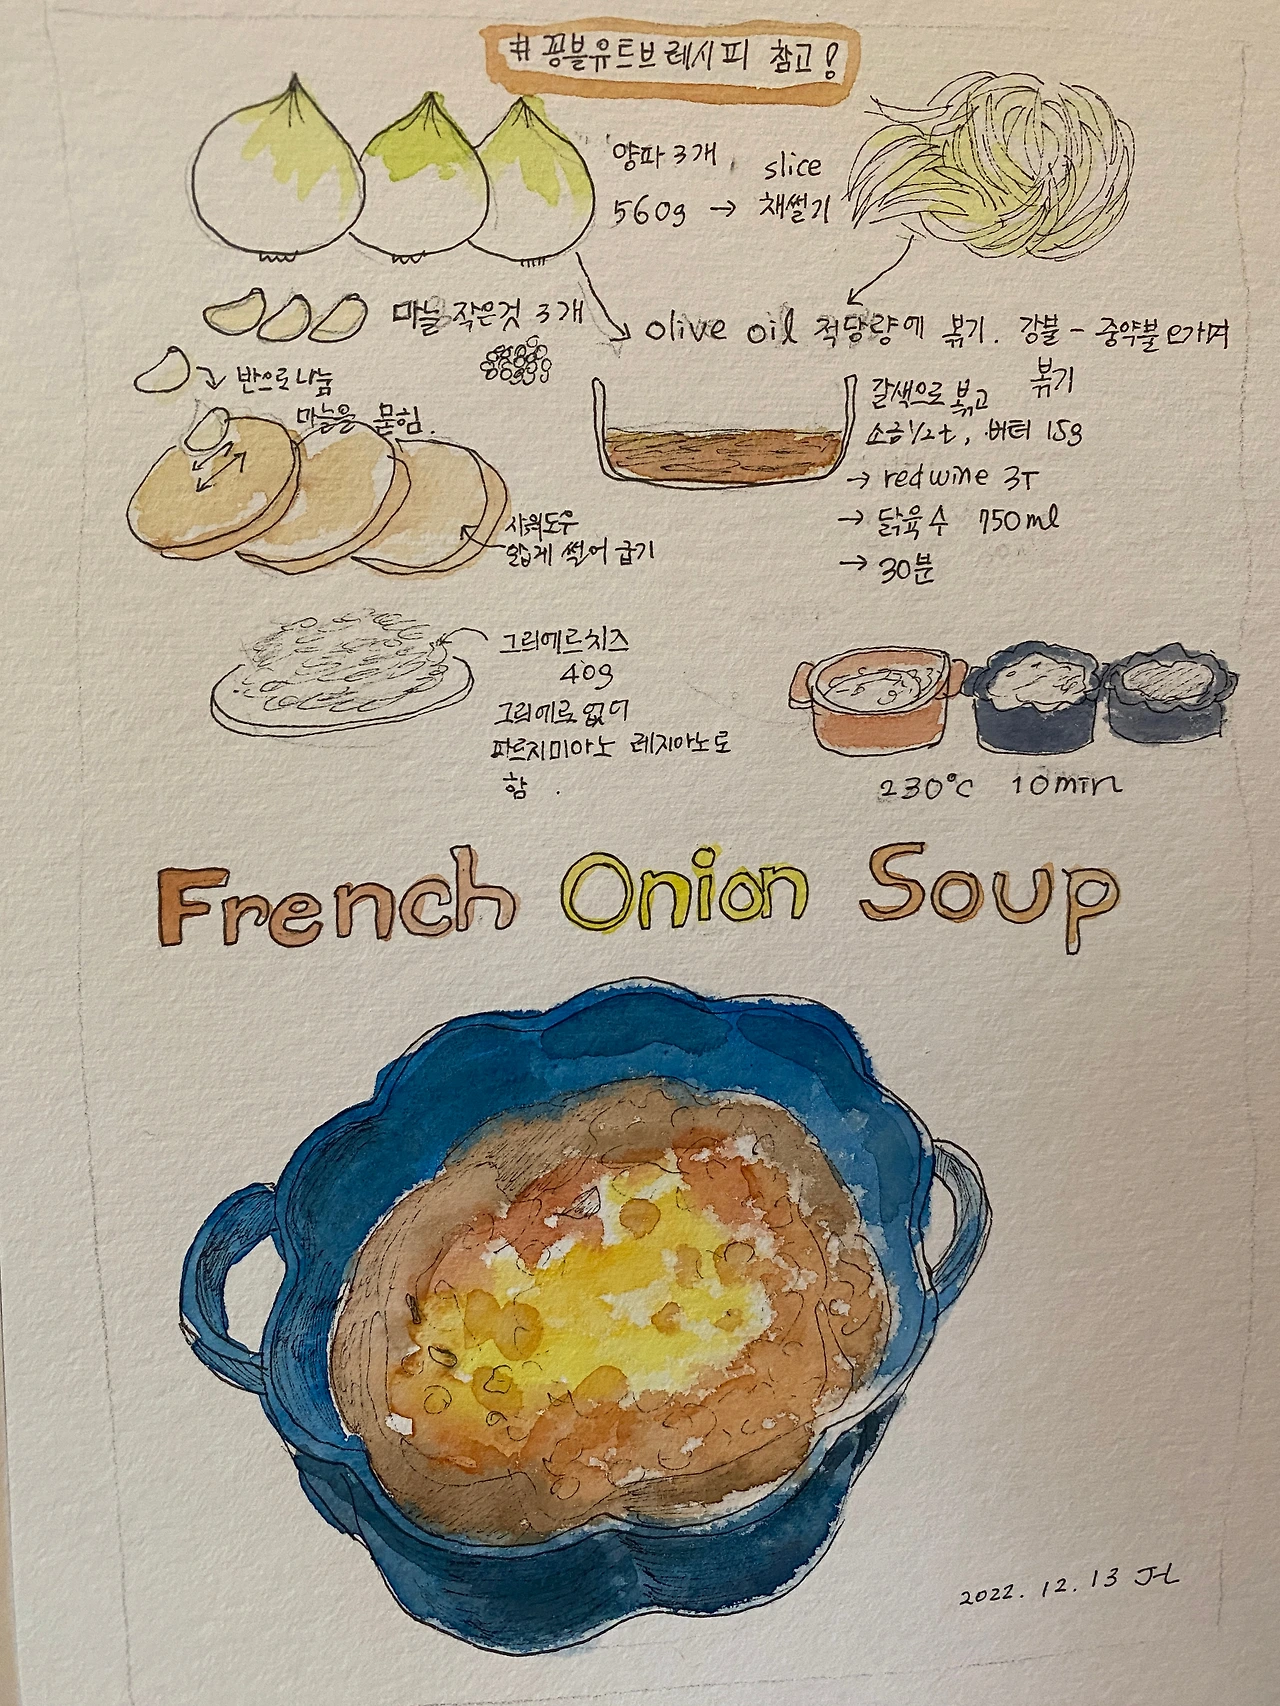 # 꽁블유트브레시피 참고!
양파 3개
560g → slice 채썰기
마늘 작은것 3개
olive oil 적당량에 볶기. 강불 - 중약불 오가며 볶기
반으로 나눔
마늘을 묻힘.
갈색으로 볶고
소금 1/2t, 버터 15g
→ red wine 3T
→ 닭육수 750ml
→ 30분
사워도우
얇게 썰어 굽기
그뤼에르치즈
40g
그뤼에르 없어
파르지미아노 레지아노로
함.
230°C 10min
French Onion Soup
2022. 12. 13 J-L